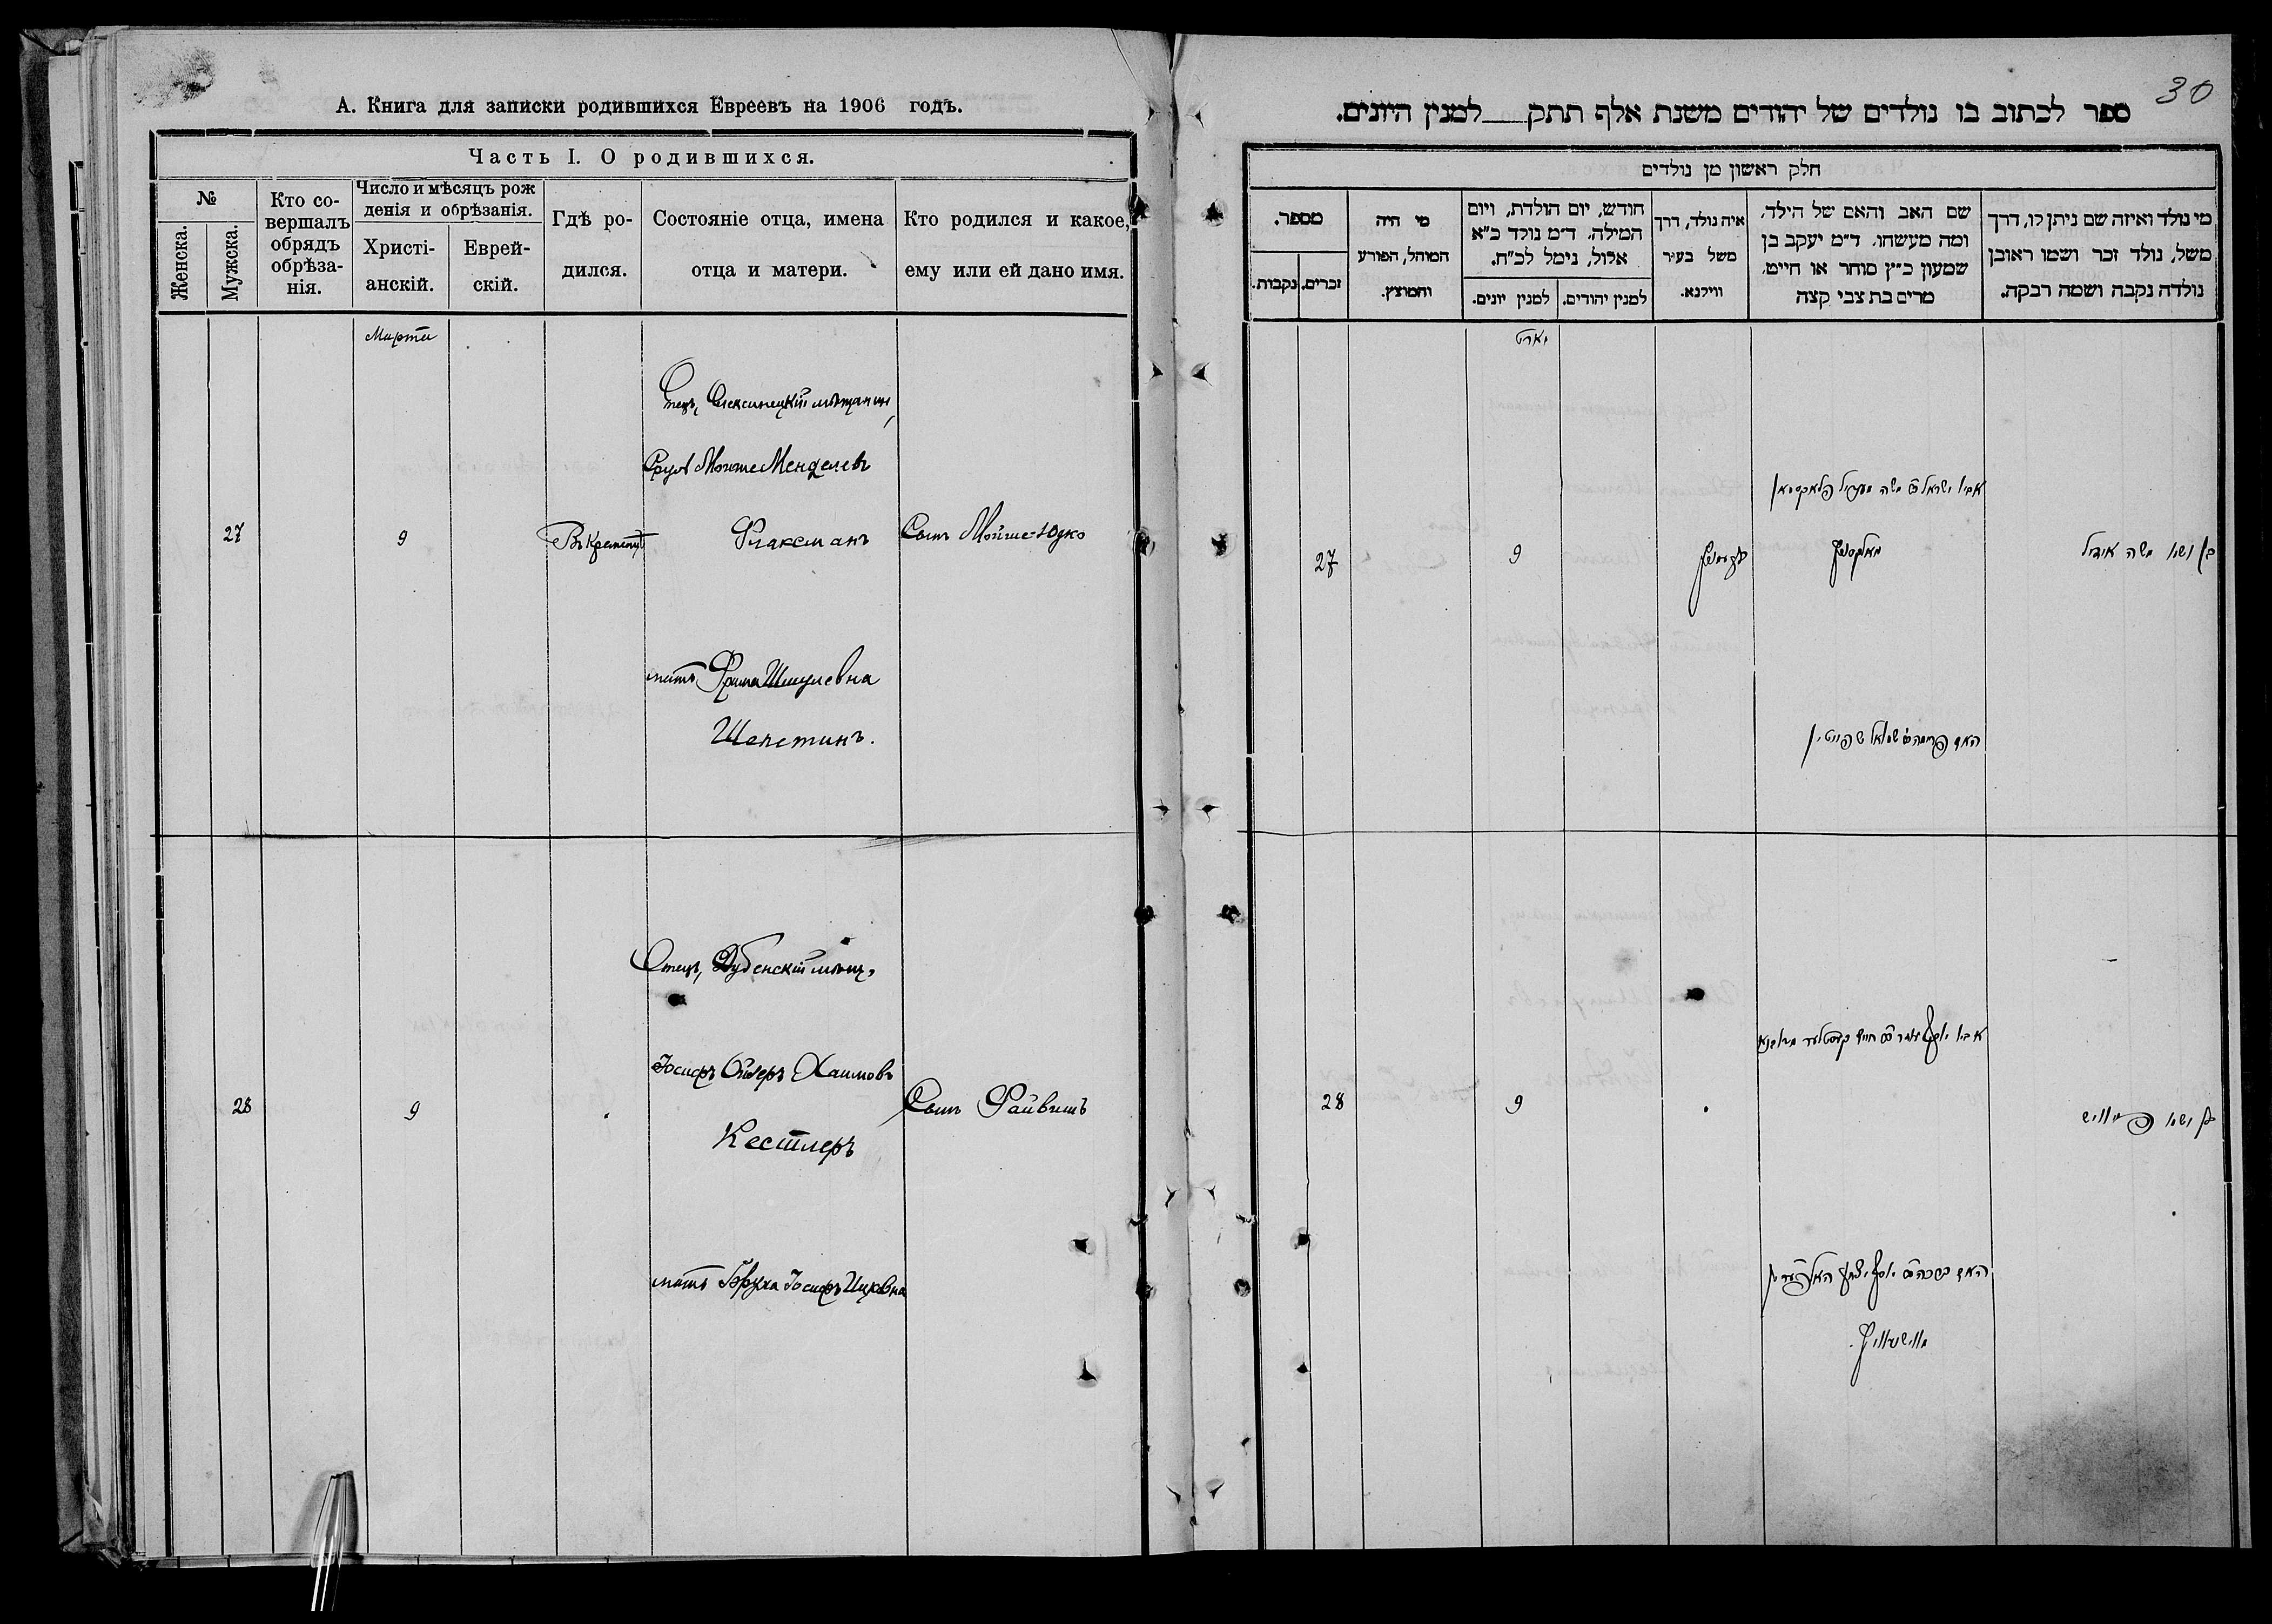 А. Книга для записки родившихся Евреевъ на 1906 годъ.
Часть I. О родившихся.
№
Женска.
Мужска.
Кто со-
вершалъ
обрядъ
обрѣза-
нія.
Число и мѣсяцъ рож
денія и обрѣзанія.
Христі-
анскій.
Еврей-
скій.
Гдѣ ро-
дился.
Состояніе отца, имена
отца и матери.
Кто родился и какое,
ему или ей дано имя.
Марта
Отецъ,
Сруль Мошке Менделевъ
27
9
Въ Кременцѣ
Флаксманъ
Сынъ Мойше-Юдко
мать Фрима Шмулевна
Шепетинъ.
Отецъ, Дубенскій мѣщ.
Іосифъ Ойзеръ Хаимовъ
28
9
Сынъ Файвишъ
Кестлеръ
мать Іосифъ Ицковна
30
ספר לכתוב בו נולדים של יהודים משנת אלף תתק למנין היונים.
חלק ראשון מן נולדים
מי נולד ואיזה שם ניתן לו, דרך
משל, נולד זכר ושמו ראובן
נולדה נקבה ושמה רבקה.
שם האב והאם של הילד,
ומה מעשהו. ד״מ יעקב בן
שמעון כ״ץ סוחר או חייט,
מרים בת צבי קצה
איה נולד, דרך
משל בעיר
ווילנא.
חודש, יום הולדת, ויום
המילה. ד״מ נולד כ״א
אלול, נימל לכ״ח.
למנין יהודים.
למנין יונים.
מי היה
המוהל, הפורע
והמוצץ.
מספר.
זכרים.
נקבות.
מארט
אביו ישראל משה מענדיל פלאקסמאן
27
9
בן ושמו משה אידיל
האם פרימה שמואל
אביו יוסף חיים קעסטלער
28
9
בן ושמו פייוויש
האם יוסף יצחק